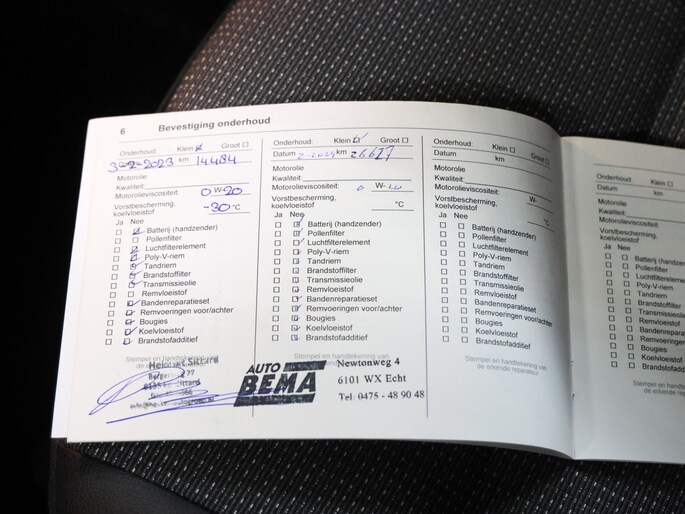 6 Bevestiging onderhoud
Onderhoud: Klein Groot
3-2-2023 km 14484
Motorolie
Kwaliteit:
Motorolieviscositeit: 0 W-20
Vorstbescherming, koelvloeistof -30 °C
Ja Nee
Batterij (handzender)
Pollenfilter
Luchtfilterelement
Poly-V-riem
Tandriem
Brandstoffilter
Transmissieolie
Remvloeistof
Bandenreparatieset
Remvoeringen voor/achter
Bougies
Koelvloeistof
Brandstofadditief
Stempel en handtekening van
Sittard
Onderhoud: Klein Groot
Datum 2-2024 km 26627
Motorolie
Kwaliteit:
Motorolieviscositeit: 0 W-20
Vorstbescherming, koelvloeistof °C
Ja Nee
Batterij (handzender)
Pollenfilter
Luchtfilterelement
Poly-V-riem
Tandriem
Brandstoffilter
Transmissieolie
Remvloeistof
Bandenreparatieset
Remvoeringen voor/achter
Bougies
Koelvloeistof
Brandstofadditief
Stempel en handtekening van
AUTO BEMA
Newtonweg 4
6101 WX Echt
Tel. 0475 - 48 90 48
Onderhoud: Klein Groot
Datum km
Motorolie
Kwaliteit:
Motorolieviscositeit: W-
Vorstbescherming, koelvloeistof °C
Ja Nee
Batterij (handzender)
Pollenfilter
Luchtfilterelement
Poly-V-riem
Tandriem
Brandstoffilter
Transmissieolie
Remvloeistof
Bandenreparatieset
Remvoeringen voor/achter
Bougies
Koelvloeistof
Brandstofadditief
Stempel en handtekening van
de erkende reparateur
Onderhoud: Klein
Datum km
Motorolie
Kwaliteit:
Motorolieviscositeit:
Vorstbescherming,
koelvloeistof
Ja Nee
Batterij (handzender)
Pollenfilter
Luchtfilterelement
Poly-V-riem
Tandriem
Brandstoffilter
Transmissieolie
Remvloeistof
Bandenreparatieset
Remvoeringen
Bougies
Koelvloeistof
Brandstofadditief
Stempel en
de erkende